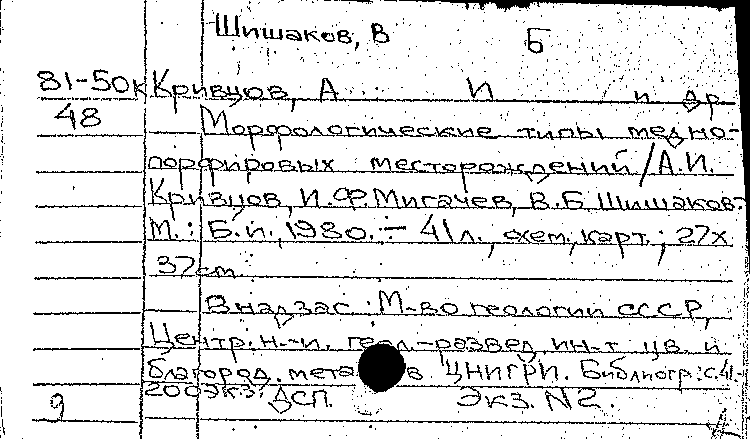 Шишаков, В Б
81-50к Кривцов, А И и др
48 Морфологические типы медно-
порфировых месторождений/А.И.
Кривцов, И.Ф.Мигачев, В.Б.Шишаков.-
М.: Б.и., 1980. - 41л., схем., карт.; 27х
37см.
В надзаг: М-во геологии СССР,
Центр. н.-и. геол.-развед. ин-т цв. и
благород. мета в ЦНИГРИ. Библиогр.: с.41-
200экз: ДСП. Экз. N2.
9